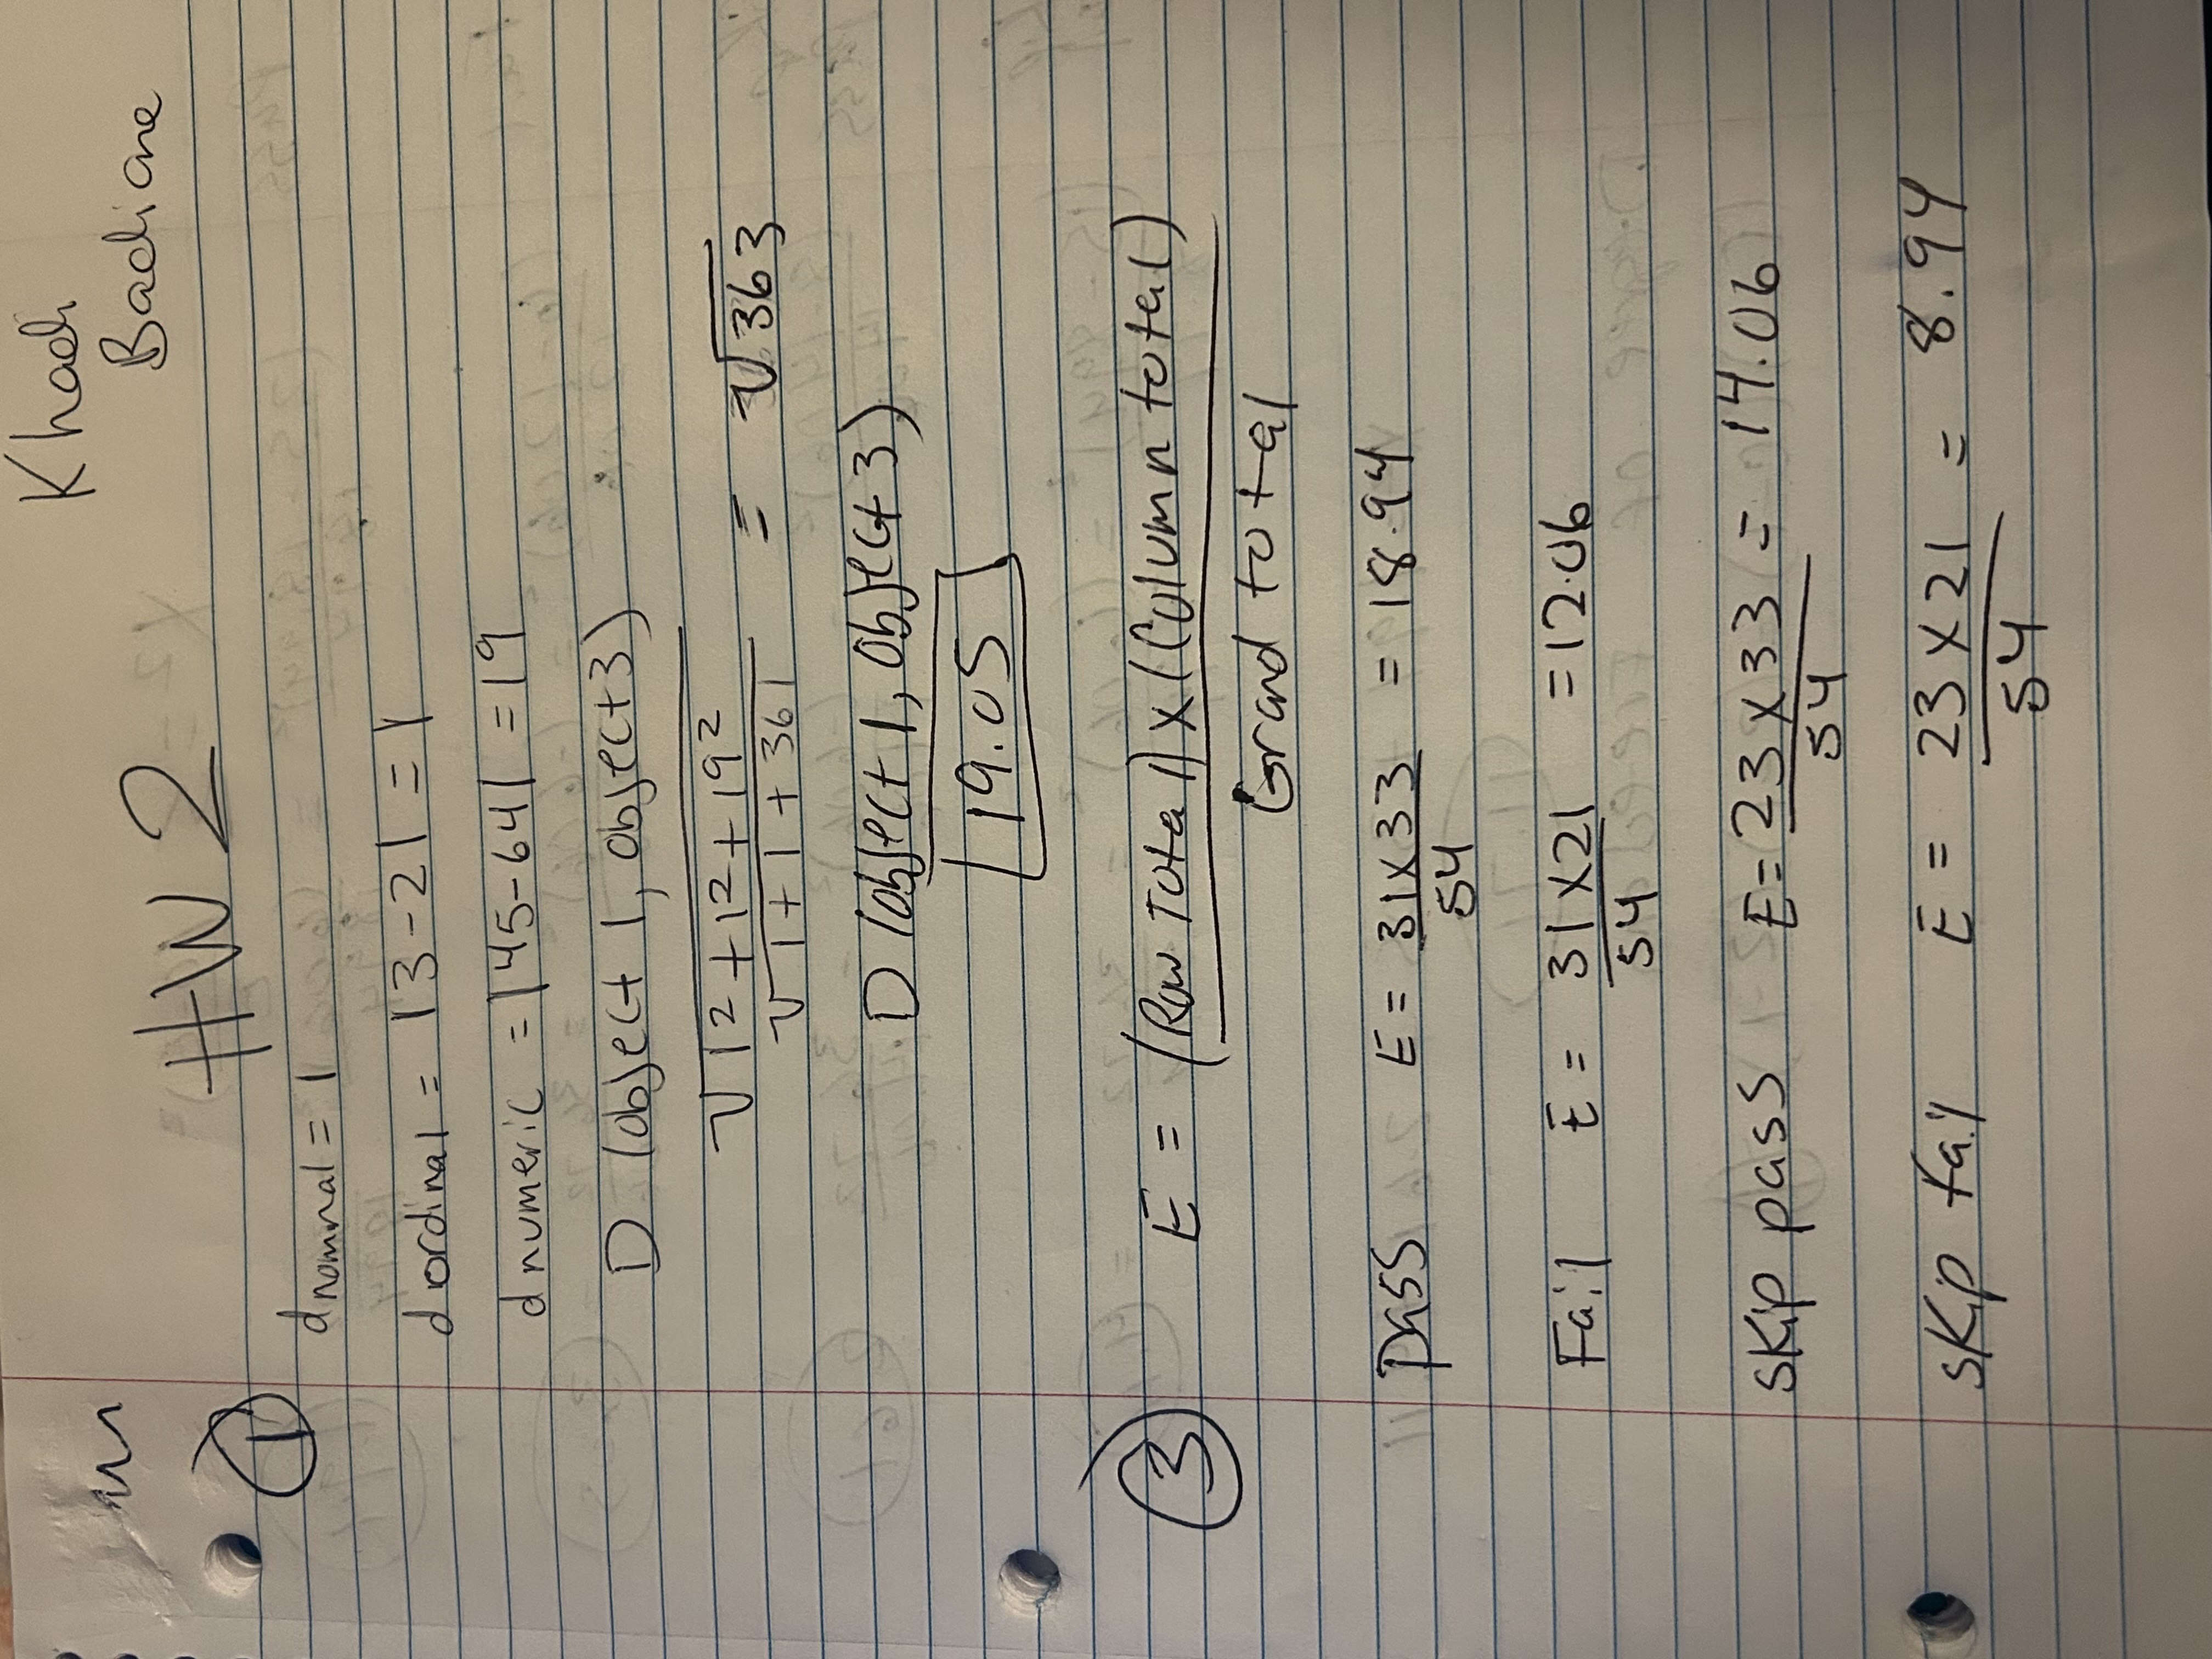 Khadi
Badiane
HW 2
1
dnomnal = 1
dordinal = |3-2| = 1
dnumeric = |45-64| = 19
D (object 1, object 3)
√1²+1²+19²
√1+1+361 = √363
D (object 1, object 3)
19.05
3
E = (Row Total) x (Column total)
Grand total
pass E = 31x33 = 18.94
54
Fail E = 31x21 = 12.06
54
skip pass E = 23x33 = 14.06
54
skip fail E = 23x21 = 8.94
54